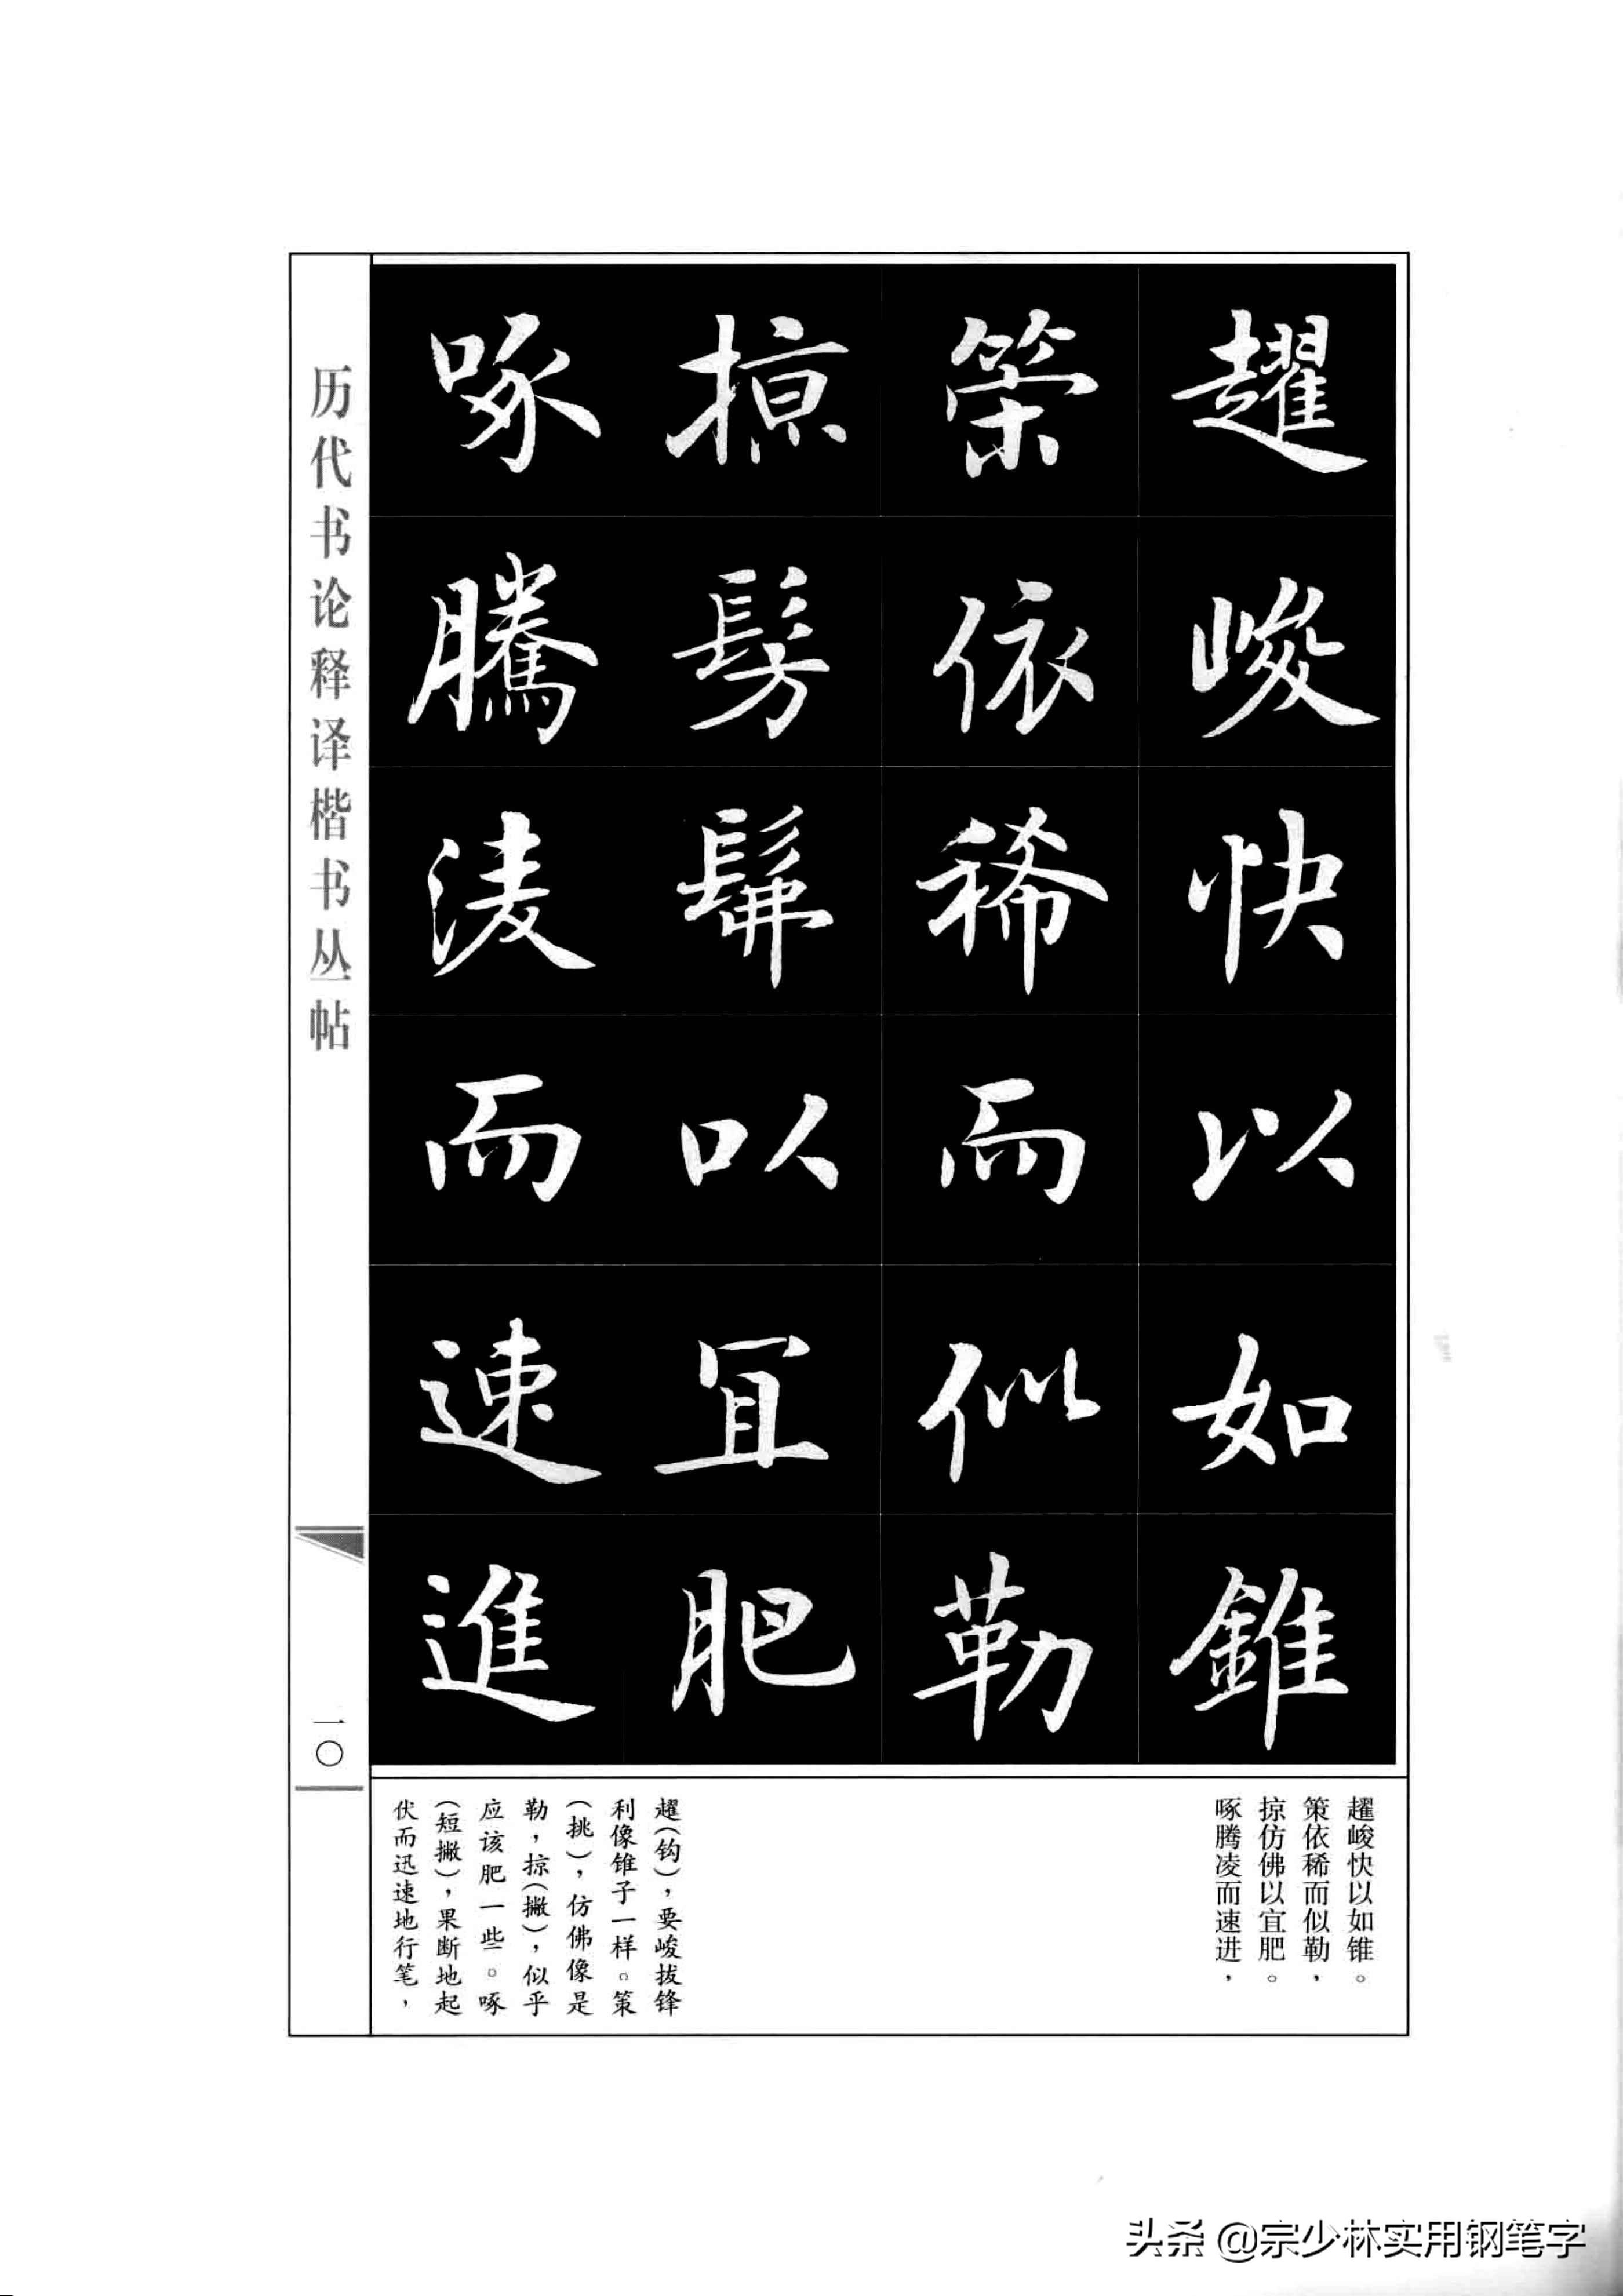 趯峻快以如錐
策依稀而似勒
掠髣髴以宜肥
啄騰凌而速進
趯峻快以如锥。
策依稀而似勒，
掠仿佛以宜肥。
啄腾凌而速进，
趯（钩），要峻拔锋
利像锥子一样。策
（挑），仿佛像是
勒，掠（撇），似乎
应该肥一些。啄
（短撇），果断地起
伏而迅速地行笔，
历代书论释译楷书丛帖
一〇
头条 @宗少林实用钢笔字